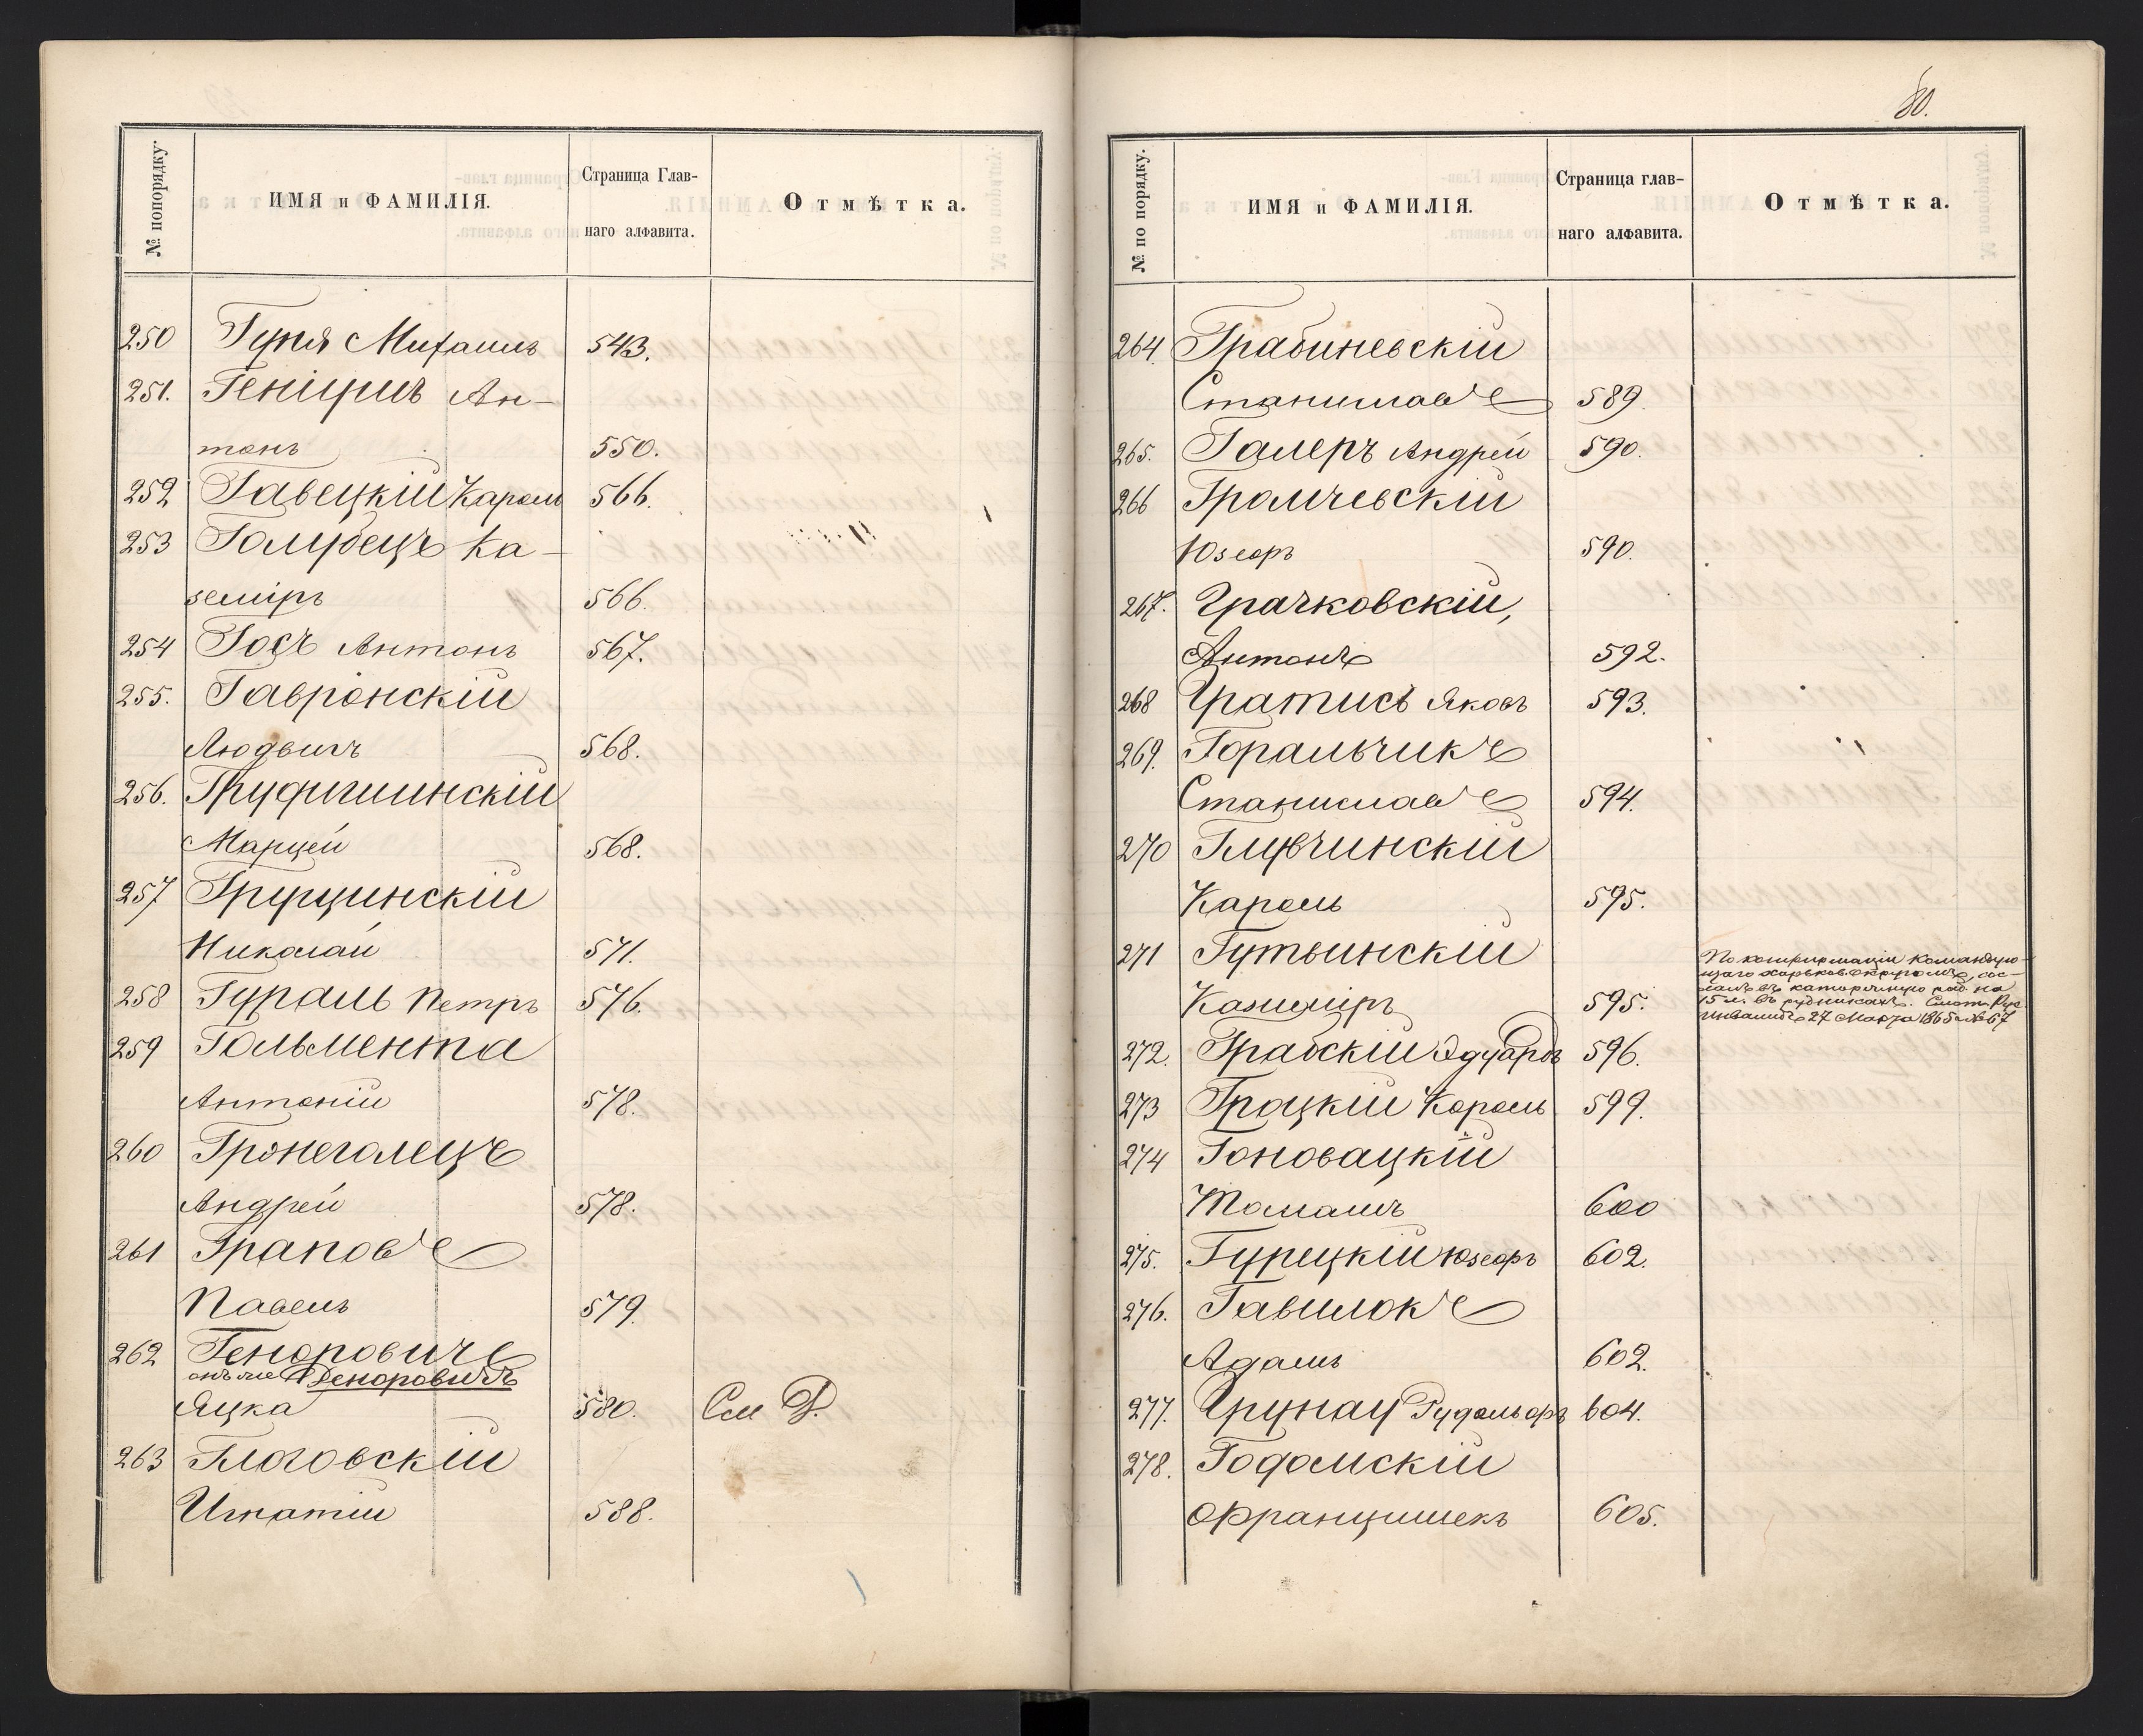 № попорядку.
ИМЯ и ФАМИЛІЯ.
Страница Глав-
наго алфавита.
Отмѣтка.
250 Гупя Михаилъ 543.
251. Геніушъ Ан-
тонъ 550.
252 Гавецкій Кароль 566.
253 Голубецъ Ка-
земіръ 566.
254 Госъ Антонъ 567.
255. Гавронскій
Людвигъ 568.
256.
Марцей 568.
257 Грущинскій
Николай 571.
258 Гураль Петръ 576.
259 Гольмента
Антоній 578.
260 Гронеголецъ
Андрей 578.
261 Граповъ
Павелъ 579.
262 Геноровичъ
онъ же Деноровичъ
Яцка 580. См Д.
263 Глоговскій
Игнатій 588.
80.
№ по порядку.
ИМЯ и ФАМИЛІЯ.
Страница глав-
наго алфавита.
Отмѣтка.
264. Грабиневскій
Станиславъ 589.
265. Галеръ Андрей 590.
266 Громчевскій
Юзефъ 590.
267. Грачковскій,
Антонъ 592.
268 Гратисъ Яковъ 593.
269. Горальчикъ
Станиславъ 594.
270 Глувчинскій
Кароль 595.
271 Гутвинскій
Казиміръ 595.
По конфирмаціи Командую-
щаго харьков округомъ, сос-
ланъ въ каторжную раб. на
15 л. въ рудникахъ. Смот. Рус
Инвалидъ 27 Марта 1865 № 67
272. Грабскій Эдуардъ 596.
273 Гроцкій Кароль 599.
274 Гоновацкій
Томашъ 600
275. Гурецкій Юзефъ 602.
276. Гавилокъ
Адамъ 602.
277. Грунау Рудольфъ 604.
278. Годомскій
Францишекъ 605.